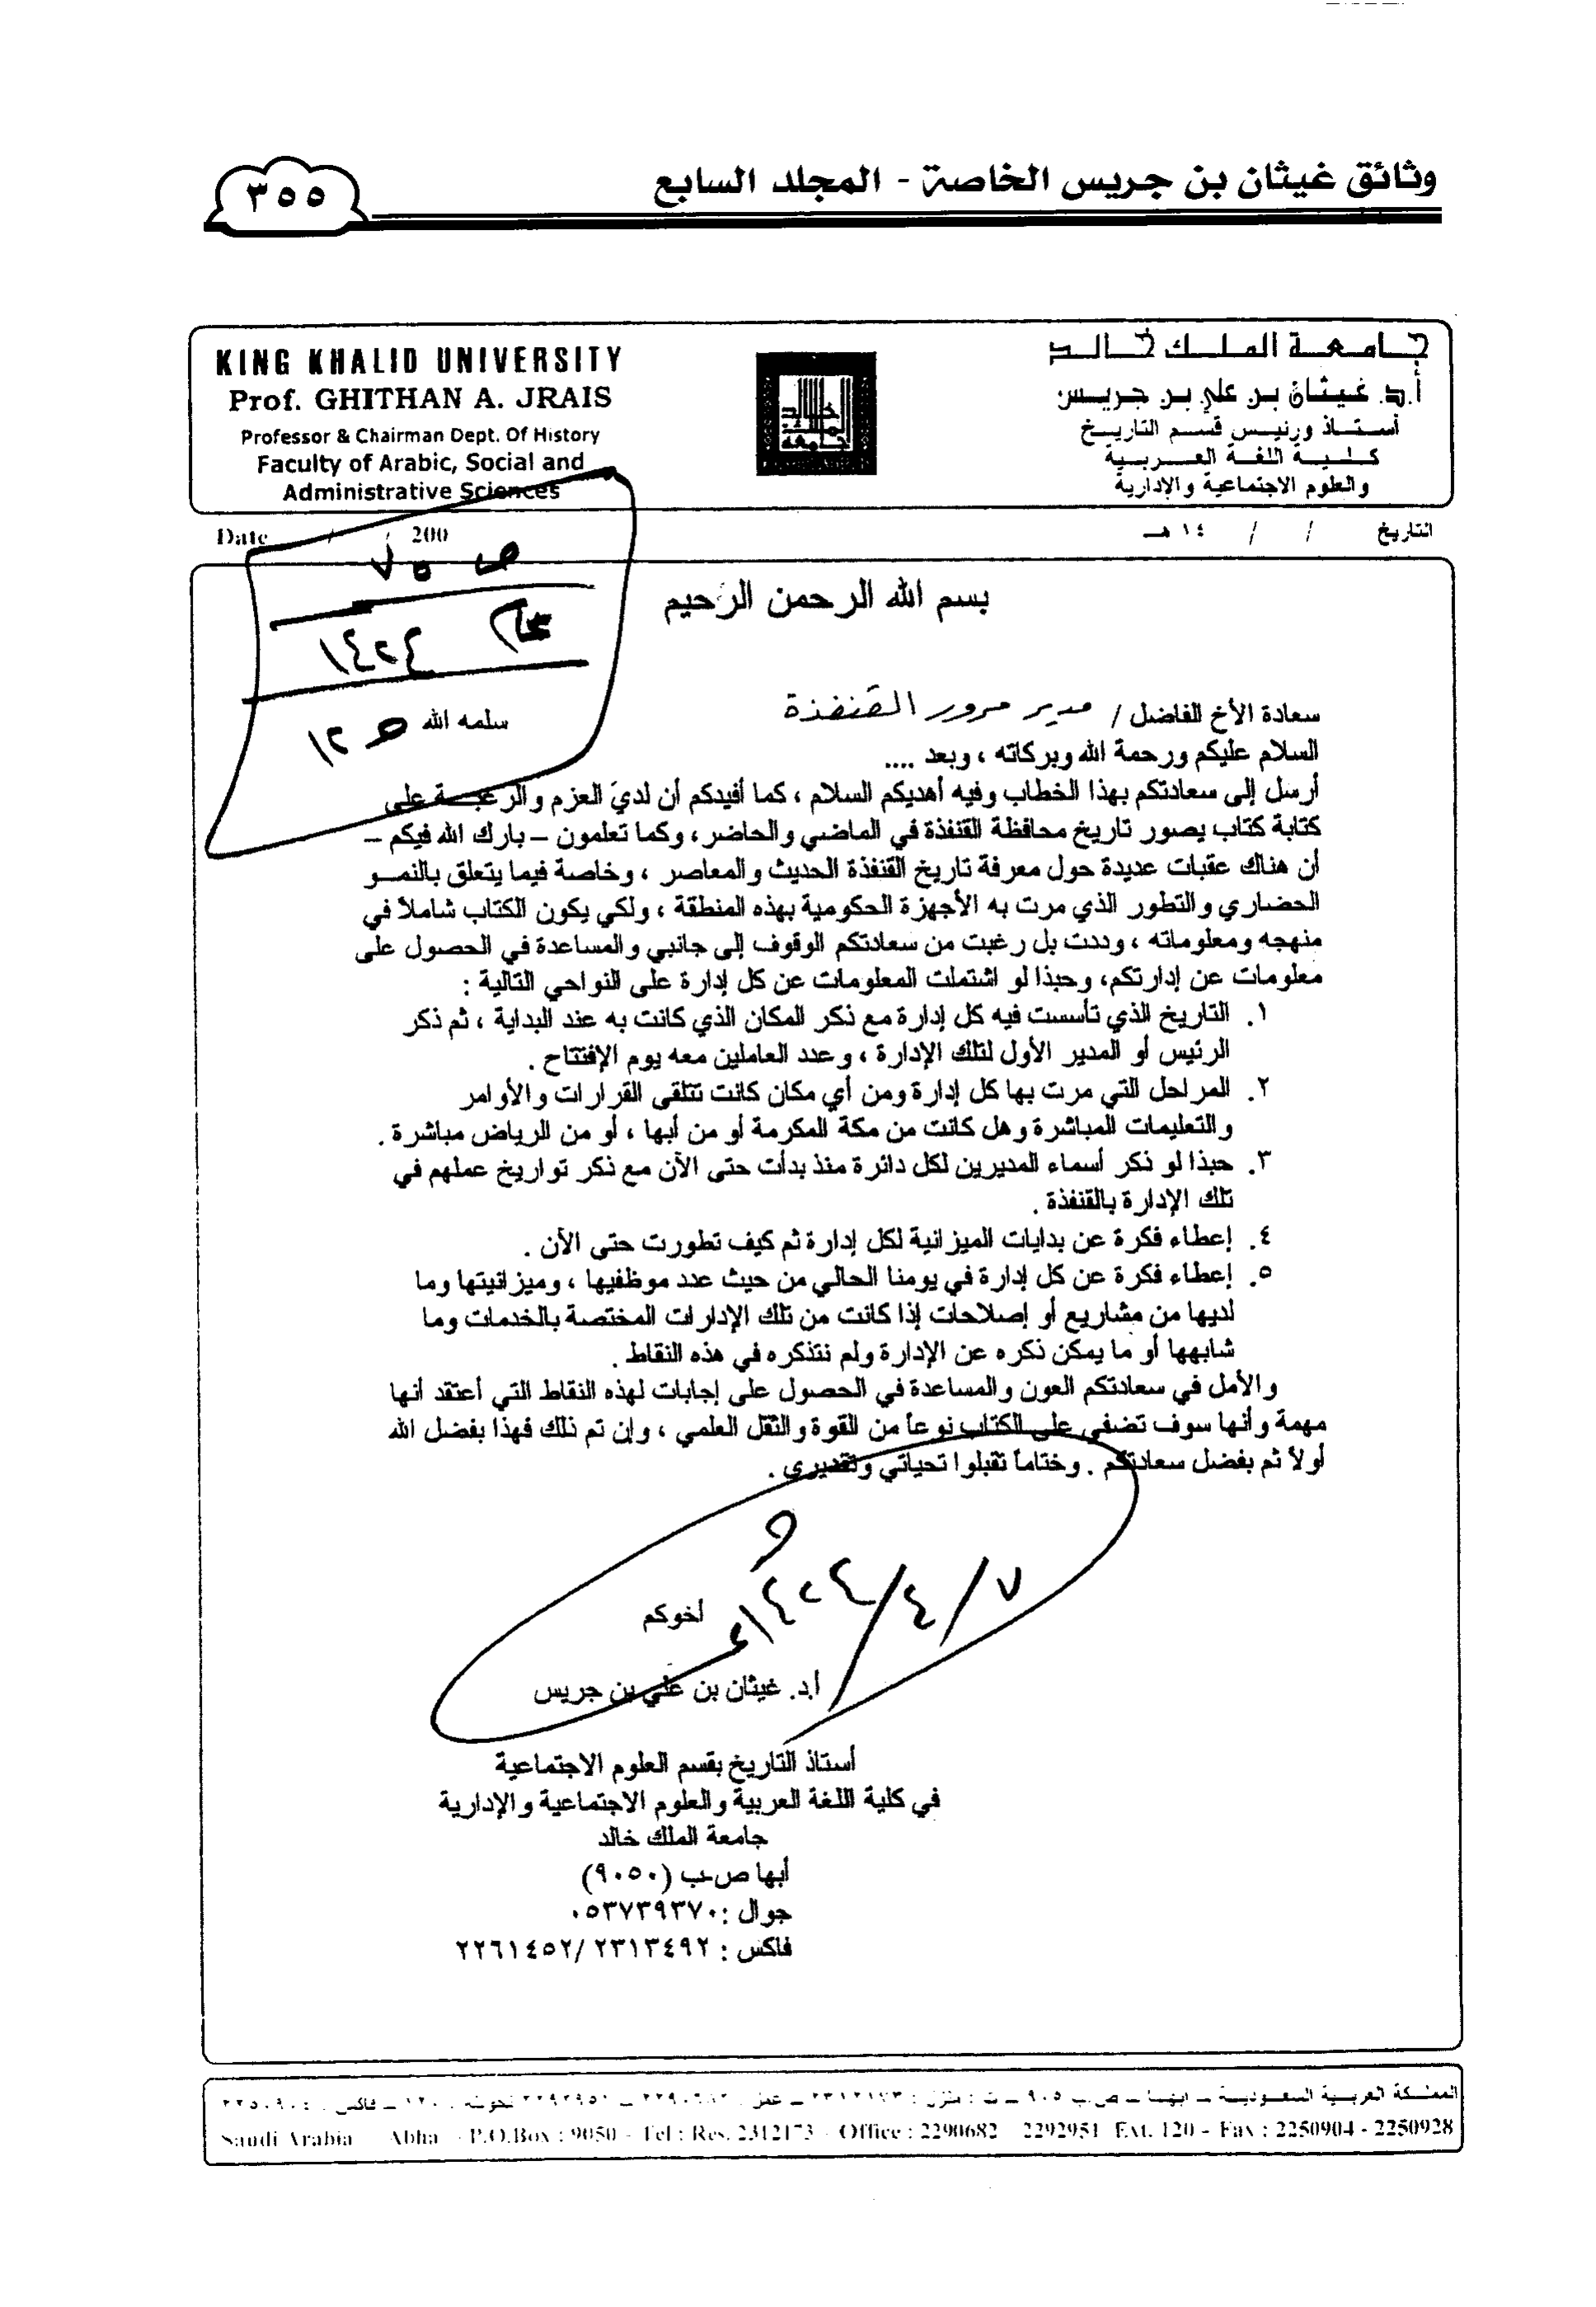 وثائق غيثان بن جريس الخاصة - المجلد السابع
٣٥٥
جامعة الملك خالد
أ.د. غيثان بن علي بن جريس
أستاذ ورئيس قسم التاريخ
كلية اللغة العربية
والعلوم الاجتماعية والإدارية
KING KHALID UNIVERSITY
Prof. GHITHAN A. JRAIS
Professor & Chairman Dept. Of History
Faculty of Arabic, Social and
Administrative Sciences
التاريخ / / ١٤ هـ
Date / / 200
بسم الله الرحمن الرحيم
ص ٧٥
١٤٢٤
سعادة الأخ الفاضل / مدير مرور القنفذة سلمه الله
ص ١٢
السلام عليكم ورحمة الله وبركاته ، وبعد ....
أرسل إلى سعادتكم بهذا الخطاب وفيه أهديكم السلام ، كما أفيدكم أن لديَ العزم والرغبة على
كتابة كتاب يصور تاريخ محافظة القنفذة في الماضي والحاضر، وكما تعلمون – بارك الله فيكم –
أن هناك عقبات عديدة حول معرفة تاريخ القنفذة الحديث والمعاصر ، وخاصة فيما يتعلق بالنمو
الحضاري والتطور الذي مرت به الأجهزة الحكومية بهذه المنطقة ، ولكي يكون الكتاب شاملاً في
منهجه ومعلوماته ، وددت بل رغبت من سعادتكم الوقوف إلى جانبي والمساعدة في الحصول على
معلومات عن إدارتكم، وحبذا لو اشتملت المعلومات عن كل إدارة على النواحي التالية :
١. التاريخ الذي تأسست فيه كل إدارة مع ذكر المكان الذي كانت به عند البداية ، ثم ذكر
الرئيس أو المدير الأول لتلك الإدارة ، وعدد العاملين معه يوم الإفتتاح .
٢. المراحل التي مرت بها كل إدارة ومن أي مكان كانت تتلقى القرارات والأوامر
والتعليمات المباشرة وهل كانت من مكة المكرمة أو من أبها ، أو من الرياض مباشرة .
٣. حبذا لو ذكر أسماء المديرين لكل دائرة منذ بدأت حتى الآن مع ذكر تواريخ عملهم في
تلك الإدارة بالقنفذة .
٤. إعطاء فكرة عن بدايات الميزانية لكل إدارة ثم كيف تطورت حتى الآن .
٥. إعطاء فكرة عن كل إدارة في يومنا الحالي من حيث عدد موظفيها ، وميزانيتها وما
لديها من مشاريع أو إصلاحات إذا كانت من تلك الإدارات المختصة بالخدمات وما
شابهها أو ما يمكن ذكره عن الإدارة ولم نتذكره في هذه النقاط .
والأمل في سعادتكم العون والمساعدة في الحصول على إجابات لهذه النقاط التي أعتقد أنها
مهمة وأنها سوف تضفي على الكتاب نوعاً من القوة والثقل العلمي ، وإن تم ذلك فهذا بفضل الله
أولاً ثم بفضل سعادتكم . وختاماً تقبلوا تحياتي وتقديري .
٧/٤/١٤٢٤
أخوكم
أ.د. غيثان بن علي بن جريس
أستاذ التاريخ بقسم العلوم الاجتماعية
في كلية اللغة العربية والعلوم الاجتماعية والإدارية
جامعة الملك خالد
أبها ص.ب (٩٠٥٠)
جوال : ٠٥٣٧٣٩٣٧٠
فاكس : ٢٣١٣٤٩٢ /٢٢٦١٤٥٢
المملكة العربية السعودية – أبها – ص.ب ٩٠٥ – ت : منزل : ٢٣١٢١٧٣ – عمل : ٢٢٩٠٦٨٢ – ٢٢٩٢٩٥١ تحويلة : ١٢٠ – فاكس : ٢٢٥٠٩٠٤
Saudi Arabia Abha - P.O.Box : 9050 - Tel : Res. 2312173 - Office : 2290682 2292951 Ext. 120 - Fax : 2250904 - 2250928